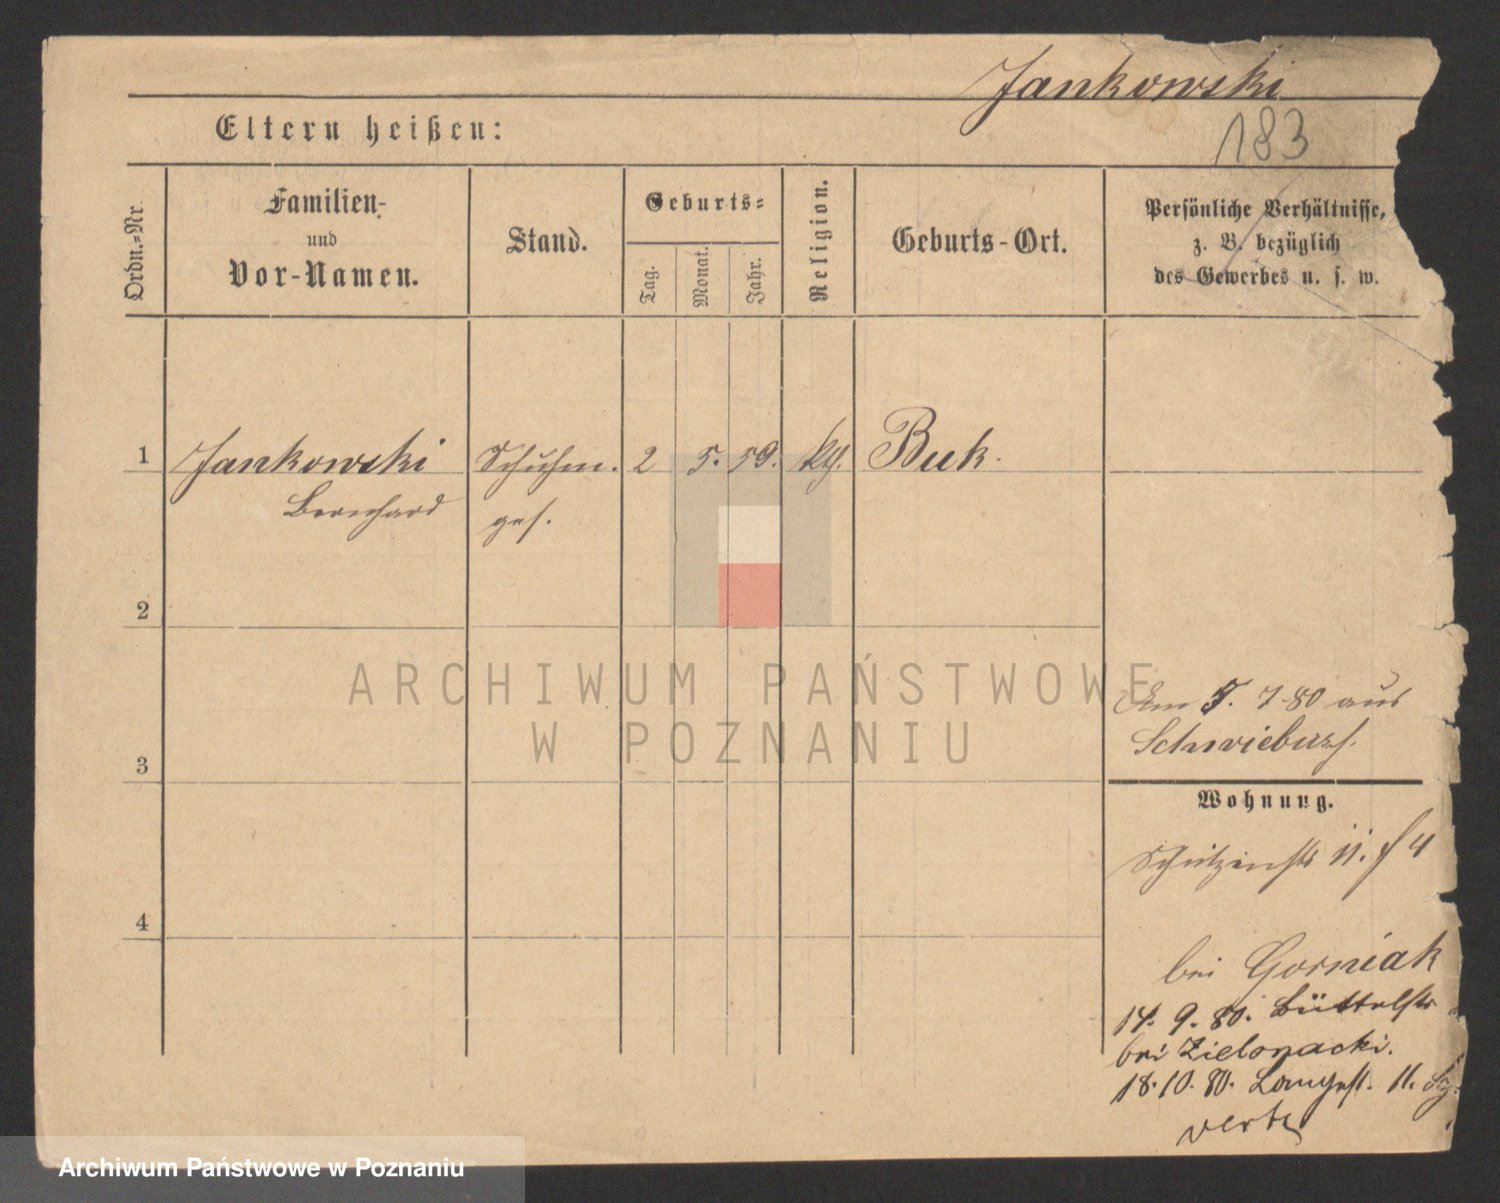 Jankowski
183
Eltern heißen:
Ordn.-Nr.
Familien-
und
Vor-Namen.
Stand.
Geburts-
Tag.
Monat.
Jahr.
Religion.
Geburts-Ort.
Persönliche Verhältnisse,
z. B. bezüglich
des Gewerbes u. s. w.
1 Jankowski Schuhm. 2 5. 59. kth. Buk.
Bernhard ges.
2
3
4
Am 5. 7. 80 aus
Schwiebus
Wohnung.
Schützenstr 11.
bei Gorniak
14. 9. 80. Büttelstr
bei Zielonacki.
18. 10. 80. Langest. 11.
verte
ARCHIWUM PAŃSTWOWE
W POZNANIU
Archiwum Państwowe w Poznaniu